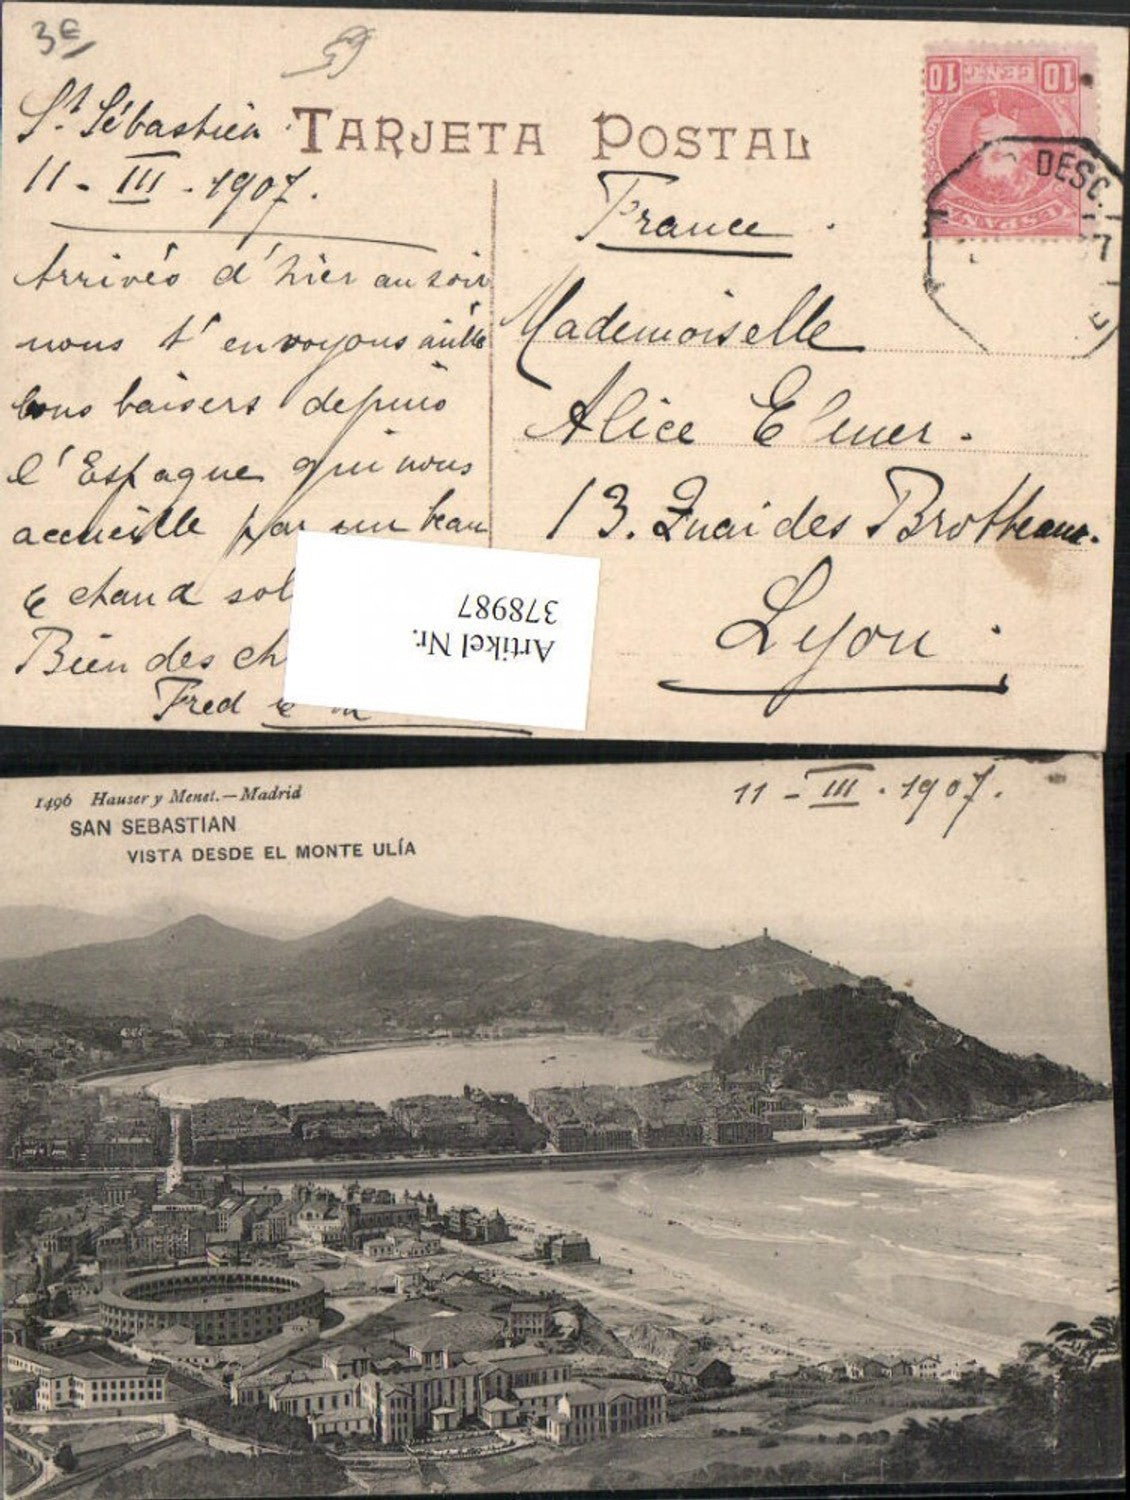 3€
59
TARJETA POSTAL
St. Sébastien
11 - III - 1907.
Arrivés d'hier au soir
nous t'envoyons mille
bons baisers depuis
l'Espagne qui nous
accueille par un beau
& chaud sol
Bien des ch
Fred &
ESPAÑA
10 CENT. 10
DESC.
France.
Mademoiselle
Alice Elmer.
13. Quai des Brotteaux.
Lyon.
Artikel Nr.
378987
1496 Hauser y Menet.—Madrid
11 - III - 1907.
SAN SEBASTIAN
VISTA DESDE EL MONTE ULÍA